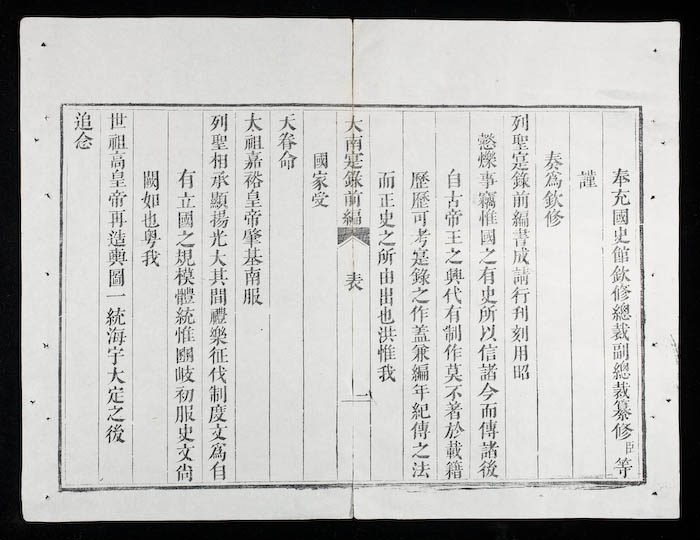 奉充國史館欽修總裁副總裁纂修臣等
謹
奏為欽修
列聖寔錄前編書成請行刊刻用昭
懿爍事竊惟國之有史所以信諸今而傳諸後
自古帝王之興代有制作莫不著於載籍
歷歷可考寔錄之作盖兼編年紀傳之法
而正史之所由出也洪惟我
大南寔錄前編 表 二
國家受
天眷命
太祖嘉裕皇帝肇基南服
列聖相承顯揚光大其間禮樂征伐制度文為自
有立國之規模體統惟關岐初服史文尚
闕如也粵我
世祖高皇帝再造輿圖一統海宇大定之後
追念